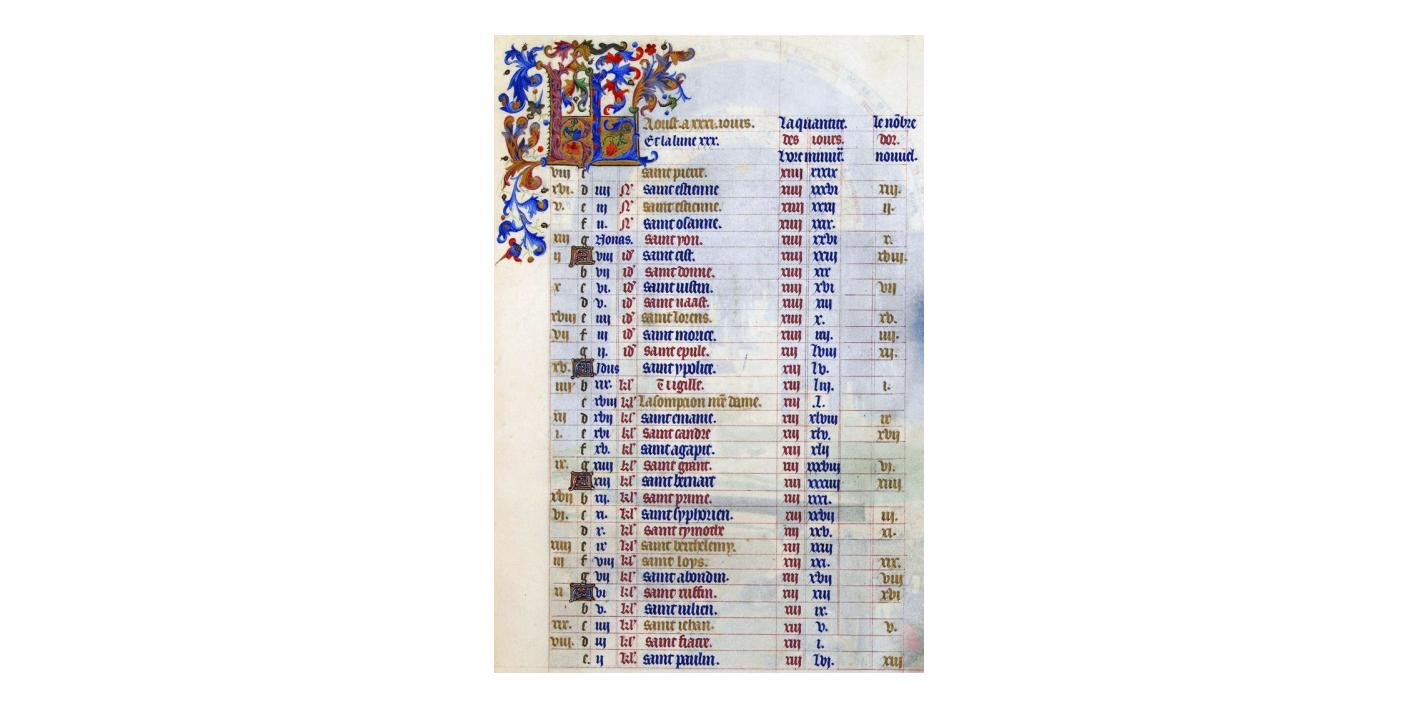 Aoust. a xxxi. iours. La quantite. le nõbre
Et la lune xxx. des iours. dor.
nouuel.
viii c saint pierre. xiiii xxxix
xvi. d iiii N' saint estienne xiiii xxxvi xiii.
v. e iii N' saint estienne. xiiii xxxii ii.
f ii. N' saint osanne. xiiii xxx.
xiii g Nonas. saint yon. xiiii xxvi x.
ii A viii id' saint sist. xiiii xxiii xviii.
b vii id' saint donne. xiiii xix
x c vi. id' saint iustin. xiiii xvi vii
d v. id' saint uaast. xiiii xiii
xviii e iiii id' saint lorens. xiiii x. xv.
vii f iii id' saint morice. xiiii iiii. iiii.
g ii. id' saint eple. xiii lviii xii.
xv. A Idus saint ypolite. xiii lv.
iiii b xix. kl' uigille. xiii liii. i.
c xviii kl' Lasompcion nr̃e dame. xiii .l.
xii d xvii kl' saint emanie. xiii xlviii ix
i. e xvi kl' saint candre xiii xlv. xvii
f xv. kl' saint agapit. xiii xlii
ix. g xiiii kl' saint xiii xxxviii vi.
A xiii kl' saint bernart xiii xxxiiii xiiii
xvii b xii. kl' saint prime. xiii xxxi.
vi. c xi. kl' saint syphorien. xiii xxvii iii.
d x. kl' saint tymothe xiii xxv. xi.
xiiii e ix kl' saint berthelemy. xiii xxii
iii f viii kl' saint loys. xiii xxi. xix.
g vii kl' saint abondin. xiii xvii viii
xi A vi kl' saint ruffin. xiii xiii xvi
b v. kl' saint iulien. xiii ix.
xix. c iiii kl' saint iehan. xiii v. v.
viii. d iii kl' saint fiacre. xiii i.
e. ii kl'. saint paulin. xiii lvi. xiii